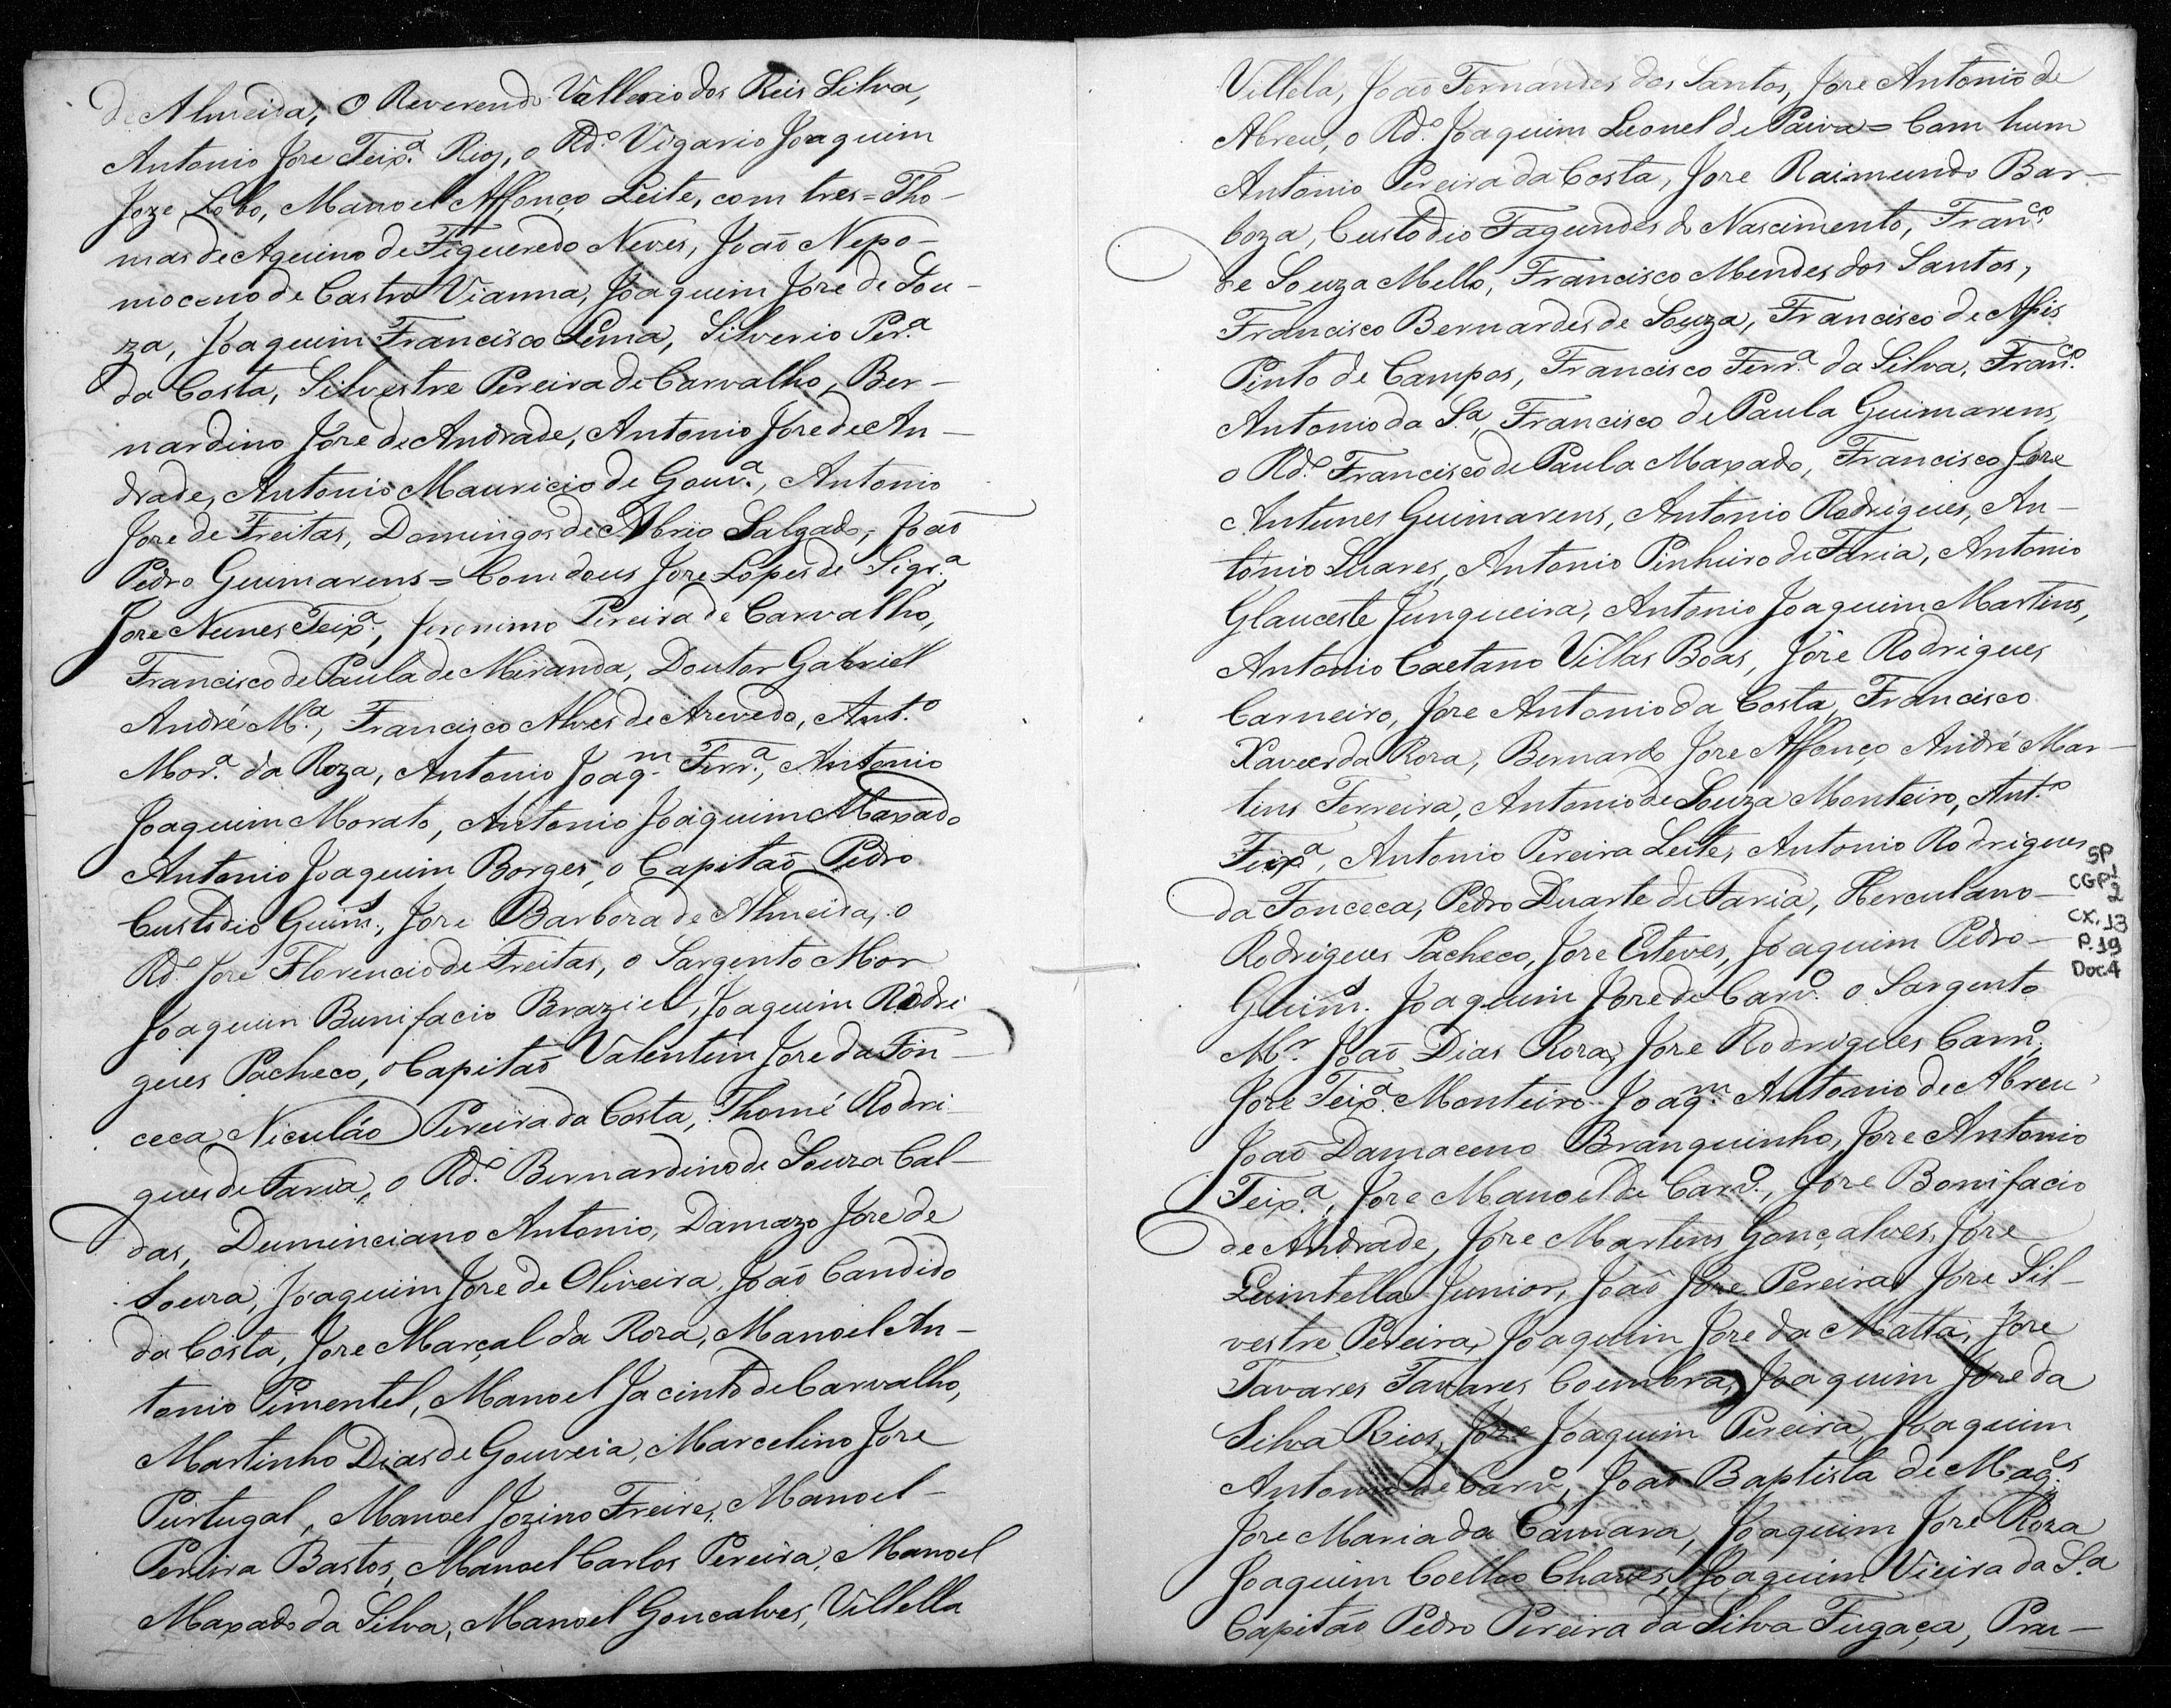 de Almeida, O Reverendo Vallerio dos Reis Silva,
Antonio Jose Teixª. Rios, o Rdº. Vigario Joaquim
Joze Lobo, Manoel Affonço Leite, com tres = Tho-
mas de Aquino de Figueredo Neves, João Nepo-
moceno de Castro Vianna, Joaquim Jose de Sou-
za, Joaquim Francisco Lima, Silverio Perª.
da Costa, Silvestre Pereira de Carvalho, Ber-
nardino Jose de Andrade, Antonio Jose de An-
drade, Antonio Mauricio de Gouvª., Antonio
Jose de Freitas, Domingos de Abrio Salgado, João
Pedro Guimarens = Com dous Jose Lopes de Sigrª.,
Jose Nunes Teixª., Jeronimo Pereira de Carvalho,
Francisco de Paula de Miranda, Doutor Gabriel
André Mª., Francisco Alves de Azevedo, Antº.
Morª. da Roza, Antonio Joaqᵐ. Ferrª., Antonio
Joaquim Morato, Antonio Joaquim Maxado
Antonio Joaquim Borges, o Capitaõ Pedro
Custodio Guimˢ., Jose Barbosa de Almeida, o
Rdº. José Florencio de Freitas, o Sargento Mor
Joaquim Bunifacio Braziel, Joaquim Rodri
gues Pacheco, o Capitaõ Valentim Jose da Fon-
ceca, Niculáo Pereira da Costa, Thomé Rodri
gues de Faria, o Rdº. Bernardino de Souza Cal-
das, Duminciano Antonio, Damazo Jose de
Souza, Joaquim Jose de Oliveira, João Candido
da Costa, Jose Marçal da Roza, Manoel An-
tonio Pimentel, Manoel Jacinto de Carvalho,
Martinho Dias de Gouveia, Marcelino Jose
Purtugal, Manoel Jozino Freire, Manoel-
Pereira Bastos, Manoel Carlos Pereira, Manoel
Maxado da Silva, Manoel Goncalves, Villella
Villela, João Fernandes dos Santos, Jose Antonio de
Abreu, o Rdº. Joaquim Leonel de Paiva = Com hum
Antonio Pereira da Costa, Jose Raimundo Bar-
boza, Custodio Fagundes do Nascimento, Franᶜᵒ.
de Souza Mello, Francisco Mendes dos Santos,
Francisco Bernardes de Souza, Francisco de Assis
Pinto de Campos, Francisco Ferrª. da Silva, Franᶜᵒ.
Antonio da Sª., Francisco de Paula Guimarens,
o Rdº. Francisco de Paula Maxado, Francisco Jose
Antunes Guimarens, Antonio Rodrigues, An-
tonio Luares, Antonio Pinheiro de Faria, Antonio
Glauceste Junqueira, Antonio Joaquim Martins,
Antonio Caetano Villas Boas, Jose Rodrigues
Carneiro, Jose Antonio da Costa, Francisco
Xavier da Roza, Bernardo Jose Affonço André Mar-
tins Ferreira, Antonio de Souza Monteiro, Antº.
Teixª., Antonio Pereira Leite, Antonio Rodrigues
da Fonceca, Pedro Duarte de Faria, Herculano-
Rodrigues Pacheco, Jose Esteves, Joaquim Pedro-
Guimˢ. Joaquim Jose de Carvº. o Sargento
Mʳ. João Dias Roza, Jose Rodrigues Carnº.,
Jose Teixª. Monteiro Joaqᵐ. Antonio de Abreu
João Damaceno Branquinho, Jose Antonio
Teixª., Jose Manoel de Carvº., Jose Bonifacio
de Andrade, Jose Martins Gonçalves, Jose
Quintella Junior, João Jose Pereira, Jose Sil-
vestre Pereira, Joaquim Jose da Matta, Jose
Tavares Tavares Coimbra, Joaquim Jose da
Silva Rios, Joze Joaquim Pereira, Joaquim
Antonio de Carvº, João Baptista de Magˢ.
Jose Maria da Camara, Joaquim Jose Roza
Joaquim Coelho Chaves, Joaquim Vieira da Sª.
Capitão Pedro Pereira da Silva Fugaça, Pru-
SP
CGP1
2
CX.13
P.19
Doc.4